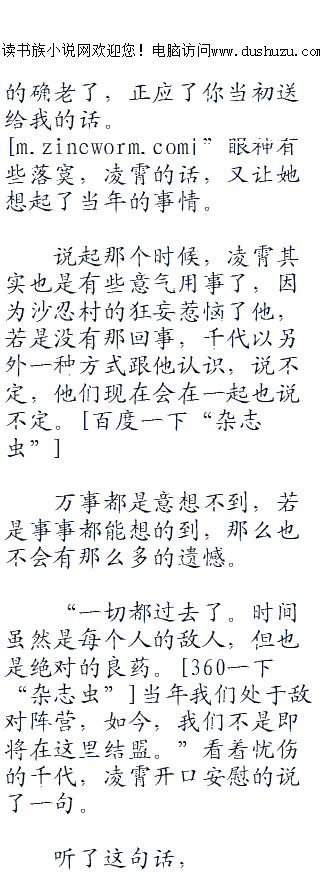 读书族小说网欢迎您！电脑访问www.dushuzu.com
的确老了，正应了你当初送
给我的话。
[m.zincworm.com|”眼神有
些落寞，凌霄的话，又让她
想起了当年的事情。
说起那个时候，凌霄其
实也是有些意气用事了，因
为沙忍村的狂妄惹恼了他，
若是没有那回事，千代以另
外一种方式跟他认识，说不
定，他们现在会在一起也说
不定。[百度一下“杂志
虫”]
万事都是意想不到，若
是事事都能想的到，那么也
不会有那么多的遗憾。
“一切都过去了。时间
虽然是每个人的敌人，但也
是绝对的良药。[360一下
“杂志虫”]当年我们处于敌
对阵营，如今，我们不是即
将在这里结盟。”看着忧伤
的千代，凌霄开口安慰的说
了一句。
听了这句话，